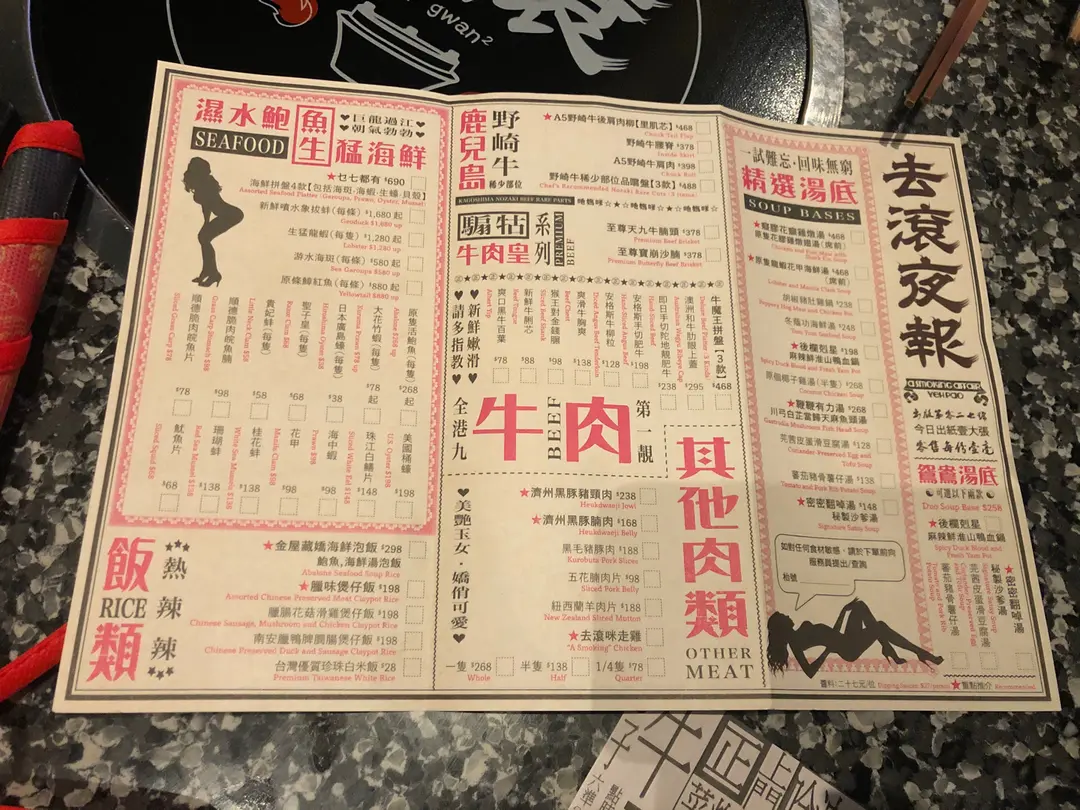 gwan²
滾
濕水鮑魚生猛海鮮
SEAFOOD
♥巨龍過江♥
♥朝氣勃勃♥
★乜七都有 $690
海鮮拼盤4款【包括海斑·海蝦·生蠔·貝類】
Assorted Seafood Platter (Garoupa, Prawn, Oyster, Mussel)
新鮮噴水象拔蚌(每條) $1,680 起
Geoduck $1,680 up
生猛龍蝦(每條) $1,280 起
Lobster $1,280 up
游水海斑(每條) $580 起
Sea Garoupa $580 up
原條鰤魚(每條) $880 起
Yellowtail $880 up
原隻活鮑魚(每隻) $268 起
Abalone $268 up
大花竹蝦(每隻) $78 起
Kuruma Prawn $78 up
日本廣島蠔(每隻) $38
Hiroshima Oyster $38
聖子皇(每隻) $68
Razor Clam $68
貴妃蚌(每隻) $58
Little Neck Clam $58
順德脆肉鯇魚腩 $98
Grass Carp Stomach $98
順德脆肉鯇魚片 $78
Sliced Grass Carp $78
美國桶蠔 $198
U.S Oyster $198
珠江白鱔片 $148
Sliced White Eel $148
海中蝦 $98
Prawn $98
花甲 $98
Manila Clam $98
桂花蚌 $138
White Sea Mussel $138
珊瑚蚌 $138
Red Sea Mussel $138
魷魚片 $68
Sliced Squid $68
飯類
RICE
熱辣辣
★金屋藏嬌海鮮泡飯 $298
鮑魚,海鮮湯泡飯
Abalone Seafood Soup Rice
★臘味煲仔飯 $198
Assorted Chinese Preserved Meat Claypot Rice
臘腸花菇滑雞煲仔飯 $198
Chinese Sausage, Mushroom and Chicken Claypot Rice
南安臘鴨髀膶腸煲仔飯 $198
Chinese Preserved Duck and Sausage Claypot Rice
台灣優質珍珠白米飯 $28
Premium Taiwanese White Rice
鹿兒島野崎牛
稀少部位
KAGOSHIMA NOZAKI BEEF RARE PARTS
★A5野崎牛後肩肉柳【里肌芯】 $468
Chuck Tail Flap
野崎牛腰脊 $378
Inside Skirt
A5野崎牛肩肉 $398
Chuck Roll
野崎牛稀少部位品嚐盤【3款】 $488
Chef's Recommended Nozaki Rare Cuts (3 items)
騸牯牛肉皇系列
PREMIUM BEEF
至尊天九牛腩頭 $378
Premium Beef Brisket
至尊寶崩沙腩 $378
Premium Butterfly Beef Brisket
牛魔王拼盤【3款】 $468
Deluxe Beef Platter (3 Kinds)
澳洲和牛肋眼上蓋 $295
Australian Wagyu Ribeye Cap
即日手切陀地靚肥牛 $238
Hand-Sliced Beef
安格斯手切肥牛 $198
Hand-Sliced Angus Beef
安格斯牛柳粒 $128
Diced Angus Beef Tenderloin
爽滑牛胸爽 $138
Beef Chest
猴王對金錢𦟌 $98
Sliced Beef Shank
新鮮牛脷芯 $88
Beef Tongue
爽口黑牛百葉 $78
Asian Trip
♥新鮮嫩滑♥
♥請多指教♥
全港九
牛肉
BEEF
第一靚
♥美艷玉女·嬌俏可愛♥
其他肉類
OTHER
MEAT
★濟州黑豚豬頸肉 $238
Heukdwaeji Jowl
★濟州黑豚腩肉 $168
Heukdwaeji Belly
黑毛豬豚肉 $188
Kurobuta Pork Slices
五花腩肉片 $98
Sliced Pork Belly
紐西蘭羊肉片 $188
New Zealand Sliced Mutton
★去滾咪走雞
"A Smoking" Chicken
一隻 $268
Whole
半隻 $138
Half
1/4隻 $78
Quarter
一試難忘·回味無窮
精選湯底
SOUP BASES
★窩膠花膠雞燉湯 $468
★原隻龍蝦花甲海鮮湯 $468
(席前)
Lobster and Manila Clam Soup
胡椒豬肚雞鍋 $238
冬蔭功海鮮湯 $248
Tom Yum Seafood Soup
★後欄剋星 $198
麻辣鮮淮山鴨血鍋
Spicy Duck Blood and Fresh Yam Pot
原個椰子雞湯(半隻) $268
Coconut Chicken Soup
★鞭鞭有力湯 $268
川芎白芷當歸天麻魚頭湯
Gastrodia Mushroom Fish Head Soup
芫茜皮蛋滑豆腐湯 $128
Coriander, Preserved Egg and Tofu Soup
蕃茄豬骨薯仔湯 $138
Tomato and Pork Rib Potato Soup
★密密翻啅湯 $148
秘製沙爹湯
Signature Satay Soup
如對任何食材敏感,請於下單前向
服務員提出/查詢
枱號
去滾夜報
A SMOKING AFFAIR
YEH PAO
今日出紙壹大張
鴛鴦湯底
可選以下兩款
Duo Soup Base $258
★後欄剋星
麻辣鮮淮山鴨血鍋
Spicy Duck Blood and Fresh Yam Pot
★密密翻啅湯
秘製沙爹湯
芫茜皮蛋滑豆腐湯
蕃茄豬骨薯仔湯
醬料:二十七元/位
★重點推介 Recommended
牛
正